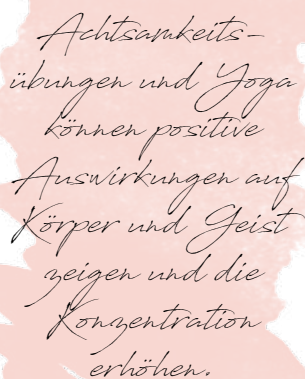 Achtsamkeits-
übungen und Yoga
können positive
Auswirkungen auf
Körper und Geist
zeigen und die
Konzentration
erhöhen.